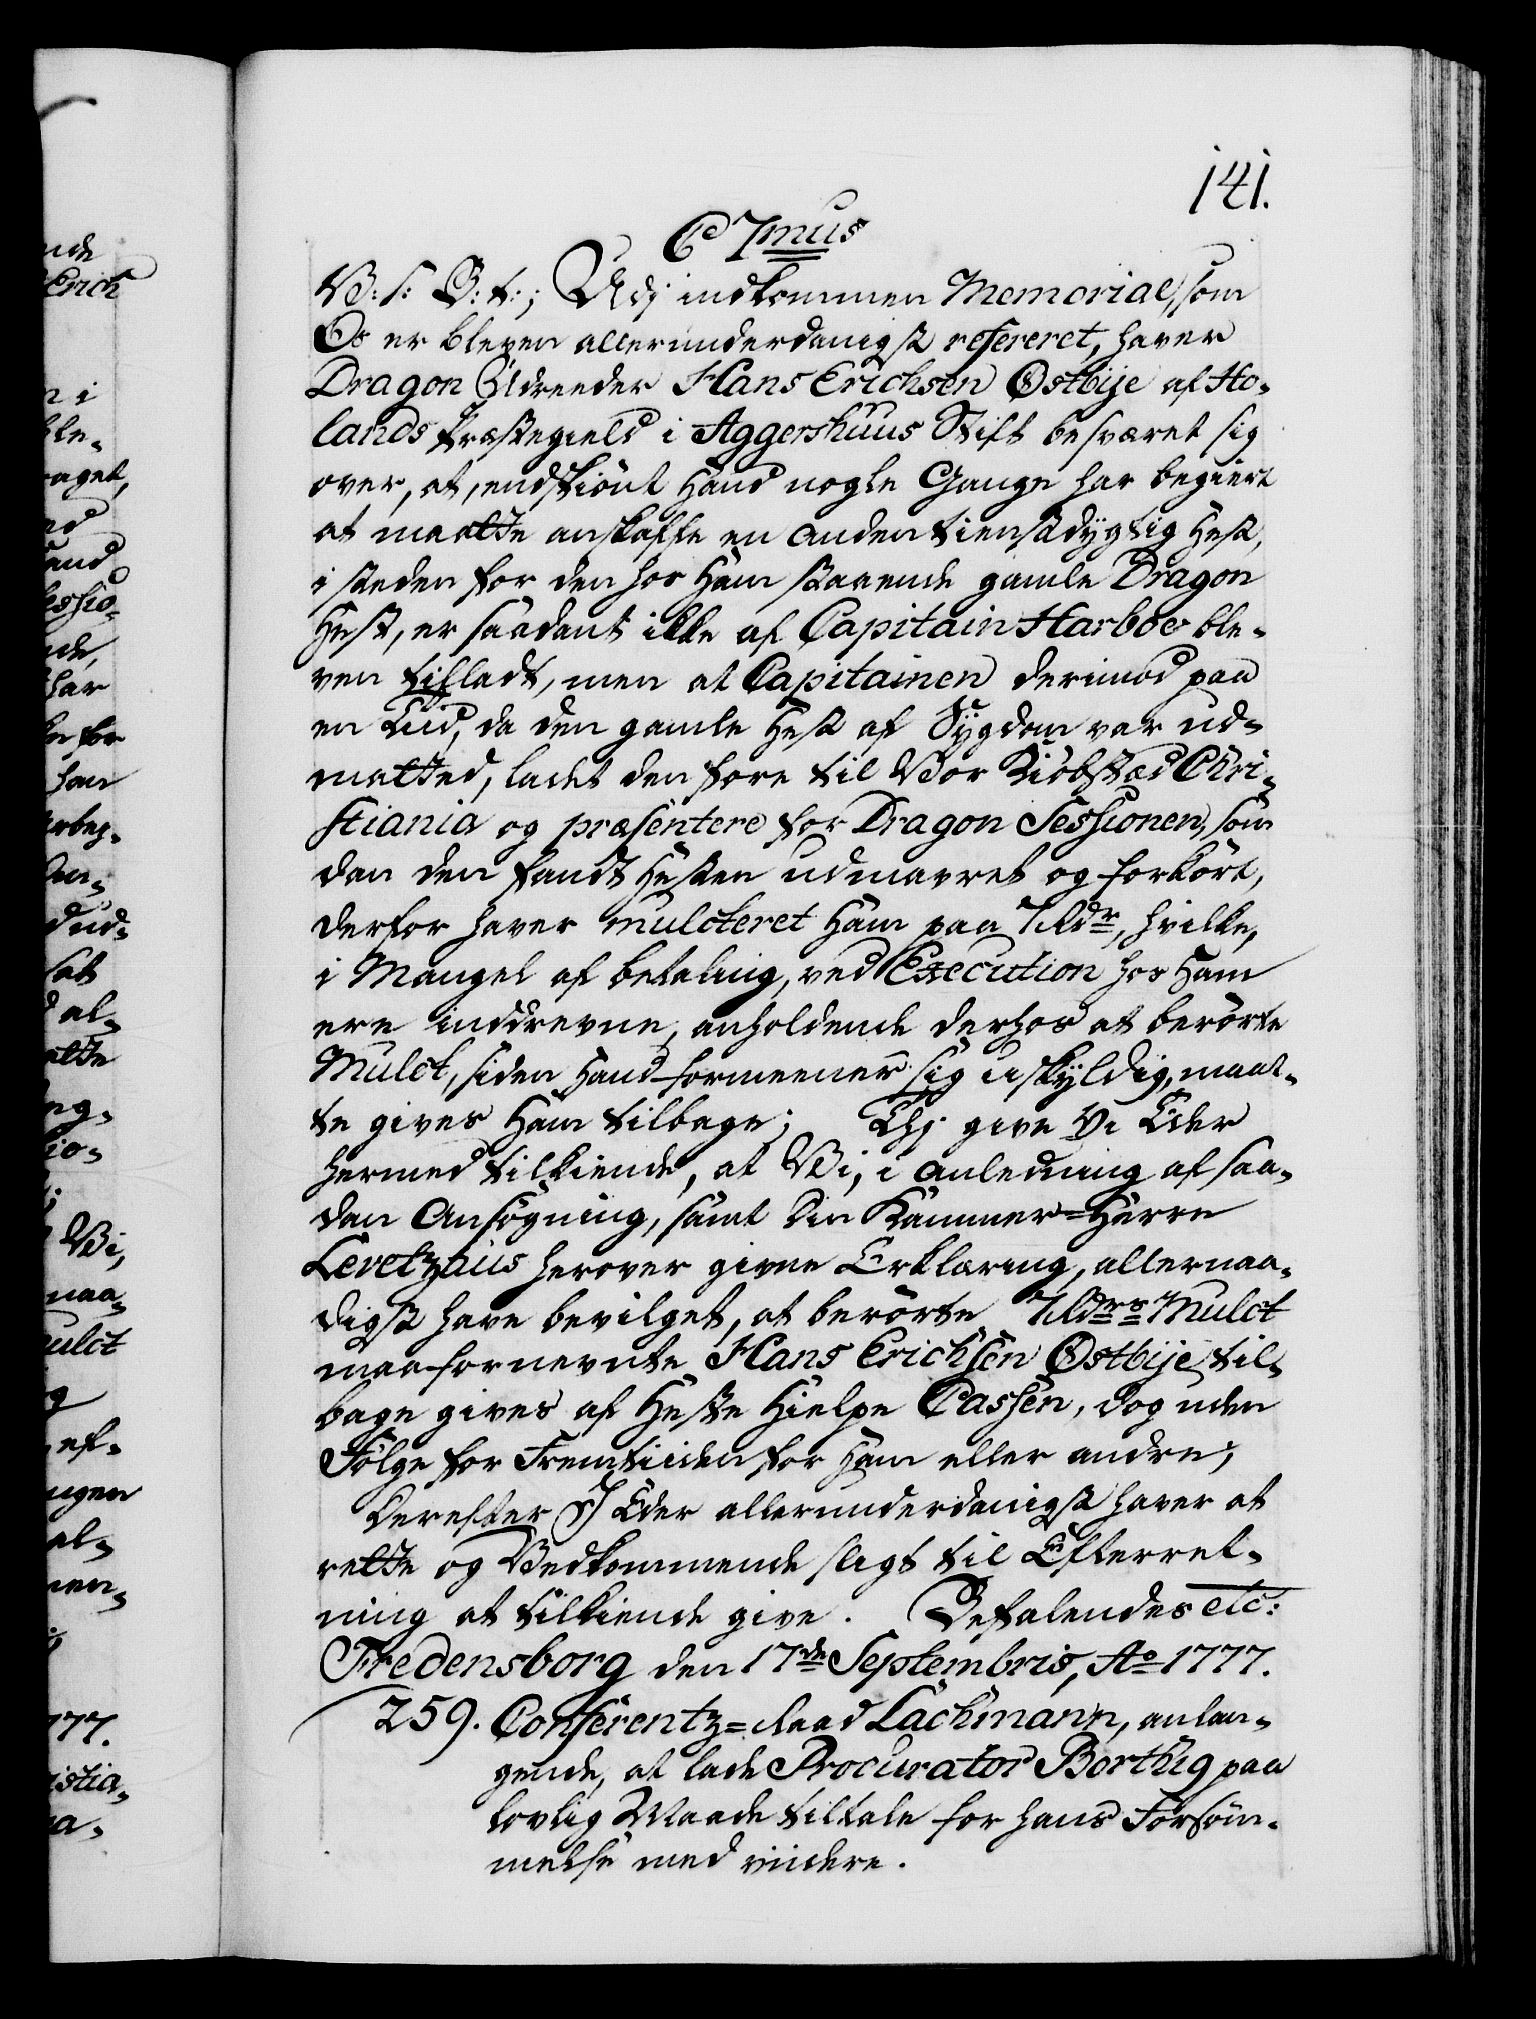 141.
C 7mus
V: S: G: T:; Udj indkommen Memorial, som
Os er bleven allerunderdanigst refereret, haver
Dragon Udreeder Hans Erichsen Østbije af Ho-
lands Præstegield i Aggershuus Stift besværet sig
over, at, endskiönt Hand nogle Gange har begiert
at maatte anskaffe en anden tienstdygtig Hest,
i steden for den hos Ham staaende gamle Dragon
Hest, er saadant ikke af Capitain Harboe ble-
ven tilladt, men at Capitainen derimod paa
en Tid, da den gamle Hest af Sygdom var ud-
matted, ladet den före til Vor Kiöbstæd Chri-
stiania og præsentere for Dragon Sessionen, som
dan den fandt Hesten udmavret og forkört,
derfor haver mulcteret Ham paa 7 Rdr, hvilke,
i Mangel af betaling, ved Execution hos Ham
ere inddrevne, anholdende derhos at berörte
Mulct, siden Hand formeener sig uskyldig, maat-
te gives Ham tilbage; Thj give Vi Eder
hermed tilkiende, at Vi, i anledning af saa-
dan Ansögning, samt Din Kammer-Herre
Levetzaus herover givne Erklæring, allernaa-
digst have bevilget, at berörte 7 Rdrs Mulct
maa fornevnte Hans Erichsen Østbije til-
bage gives af Heste Hielpe Cassen, dog uden
Fölge for Fremtiden for Ham eller andre;
Derefter I Eder allerunderdanigst haver at
rette og Vedkommende sligt til Efterret-
ning at tilkiende give. Befalendes etc:
Fredensborg den 17de Septembris, Ao 1777.
259. Conferentz-Raad Lachmann, anlan-
gende, at lade Procurator Borthig paa
lovlig Maade tiltale for hans Forsöm-
melse med viidere.